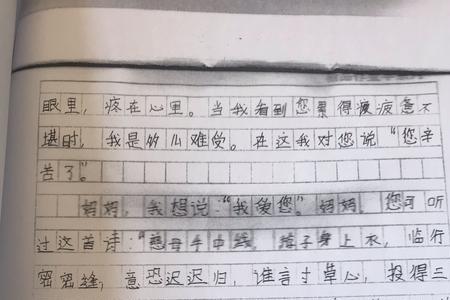 眼里，疼在心里。当我看到您累得疲惫不
堪时，我是多么难受。在这我对您说“您辛
苦了”。
妈妈，我想说：“我爱您”。妈妈，您可听
过这首诗：“慈母手中线，游子身上衣，临行
密密缝，意恐迟迟归，谁言寸草心，报得三